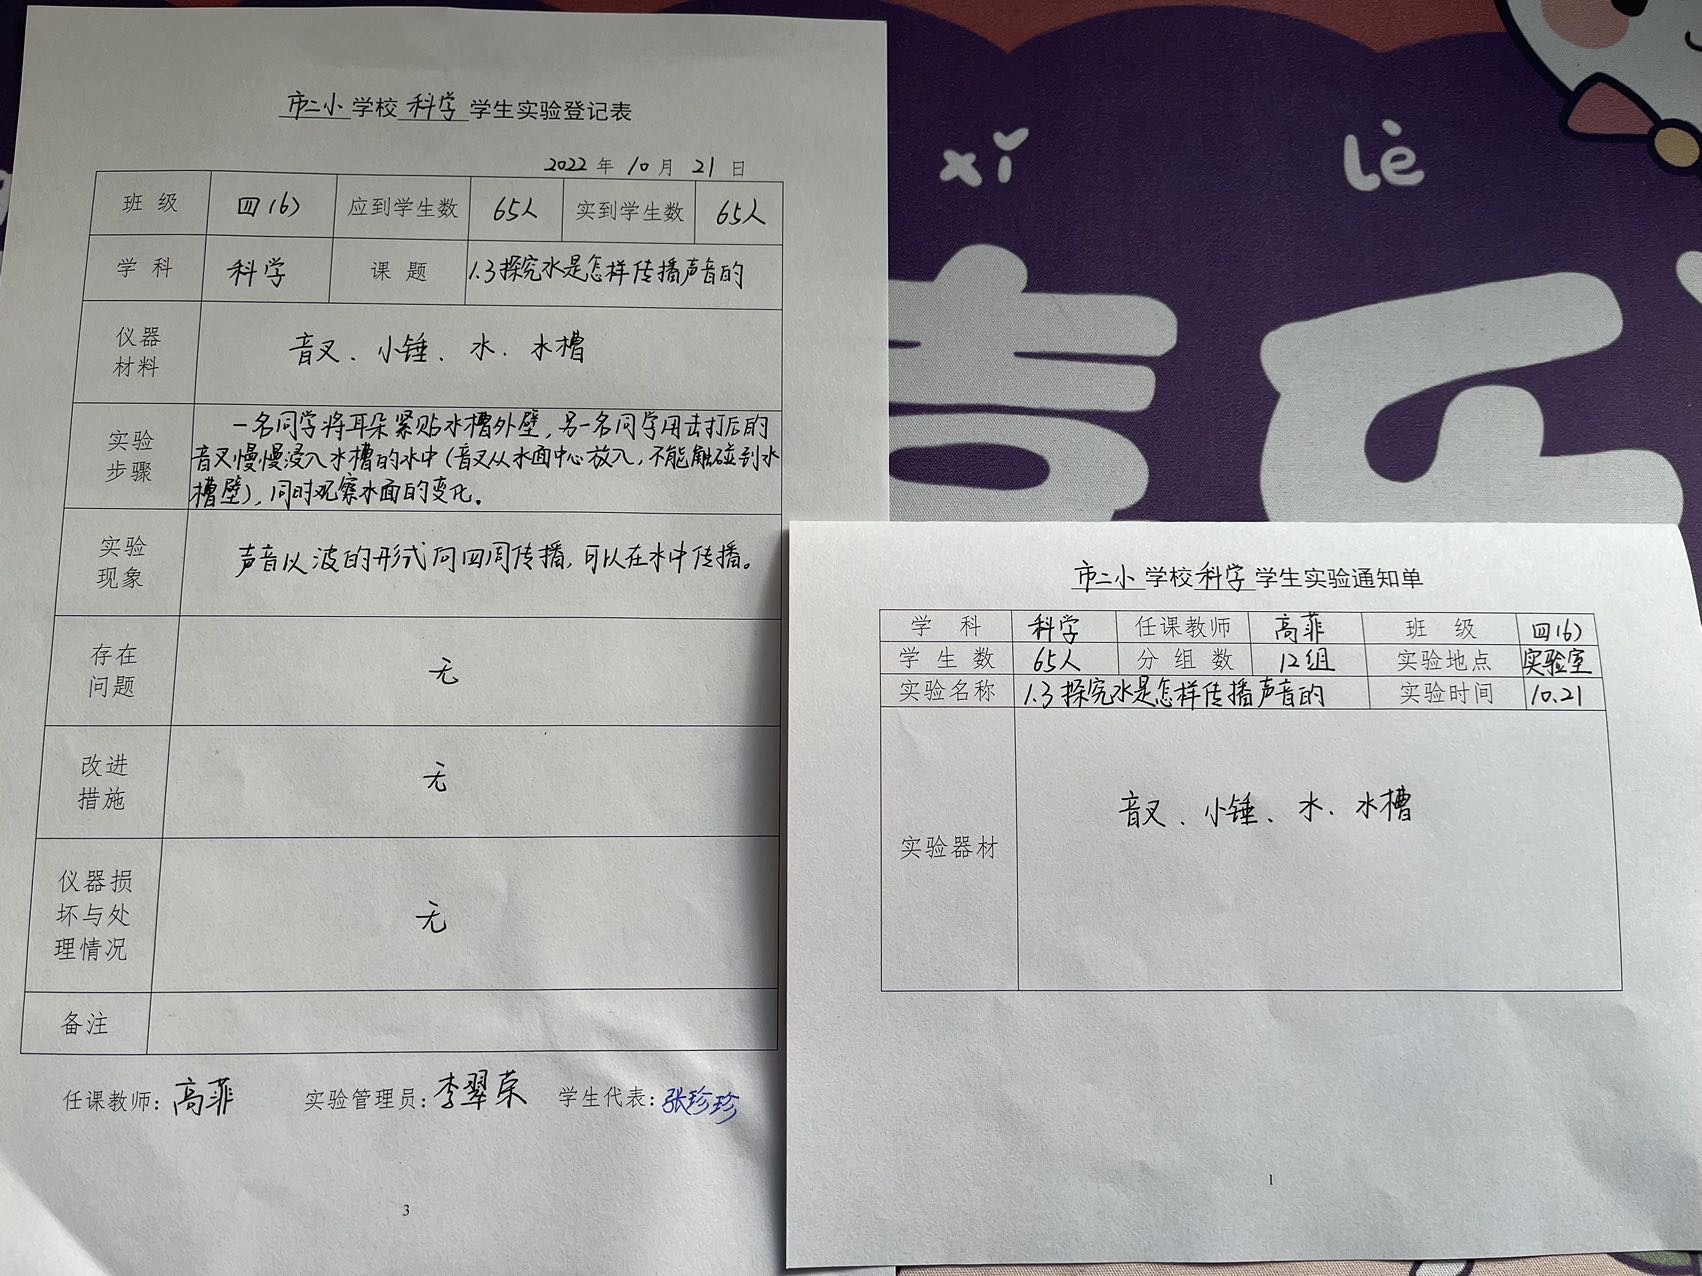 市二小 学校 科学 学生实验登记表
2022 年 10 月 21 日
班 级 四(6) 应到学生数 65人 实到学生数 65人
学 科 科学 课 题 1.3探究水是怎样传播声音的
仪器
材料
音叉、小锤、水、水槽
实验
步骤
一名同学将耳朵紧贴水槽外壁,另一名同学用击打后的
音叉慢慢浸入水槽的水中(音叉从水面中心放入,不能触碰到水
槽壁),同时观察水面的变化。
实验
现象
声音以波的形式向四周传播,可以在水中传播。
存在
问题
无
改进
措施
无
仪器损
坏与处
理情况
无
备注
任课教师:高菲 实验管理员:李翠荣 学生代表:张珍珍
3
xǐ lè
喜乐
市二小 学校 科学 学生实验通知单
学 科 科学 任课教师 高菲 班 级 四(6)
学 生 数 65人 分 组 数 12组 实验地点 实验室
实验名称 1.3探究水是怎样传播声音的 实验时间 10.21
实验器材 音叉、小锤、水、水槽
1